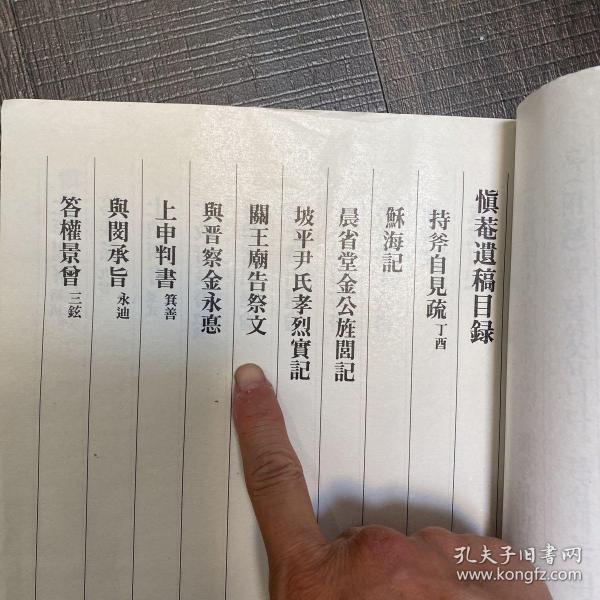 愼菴遺稿目録
持斧自見疏 丁酉
穌海記
晨省堂金公旌閭記
坡平尹氏孝烈實記
關王廟告祭文
與晋察金永悳
上申判書 箕善
與閔承旨 永迪
答權景曾 三鉉
孔夫子旧书网
www.kongfz.com